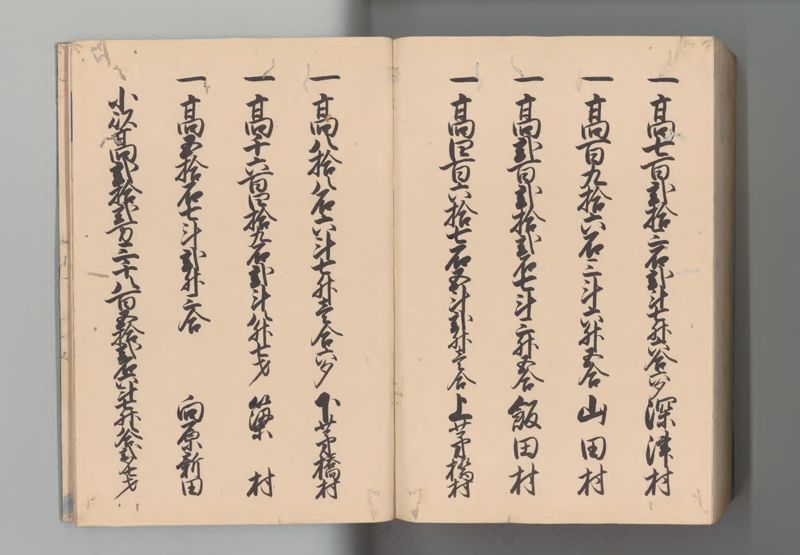 一高七百弐拾三石弐斗七升六合六夕 深津村
一高百九拾六石三斗六升五合 山田村
一高弐百弐拾弐石七斗三升五合 飯田村
一高四百六拾七石五斗弐升壱合 上茅橋村
一高八拾八石六斗七升壱合六夕 下茅橋村
一高千六百四拾九石弐斗八升七才 築村
一高五拾石七斗弐升三合 向原新田
小以高弐拾弐万三千八百五拾弐石六斗七升